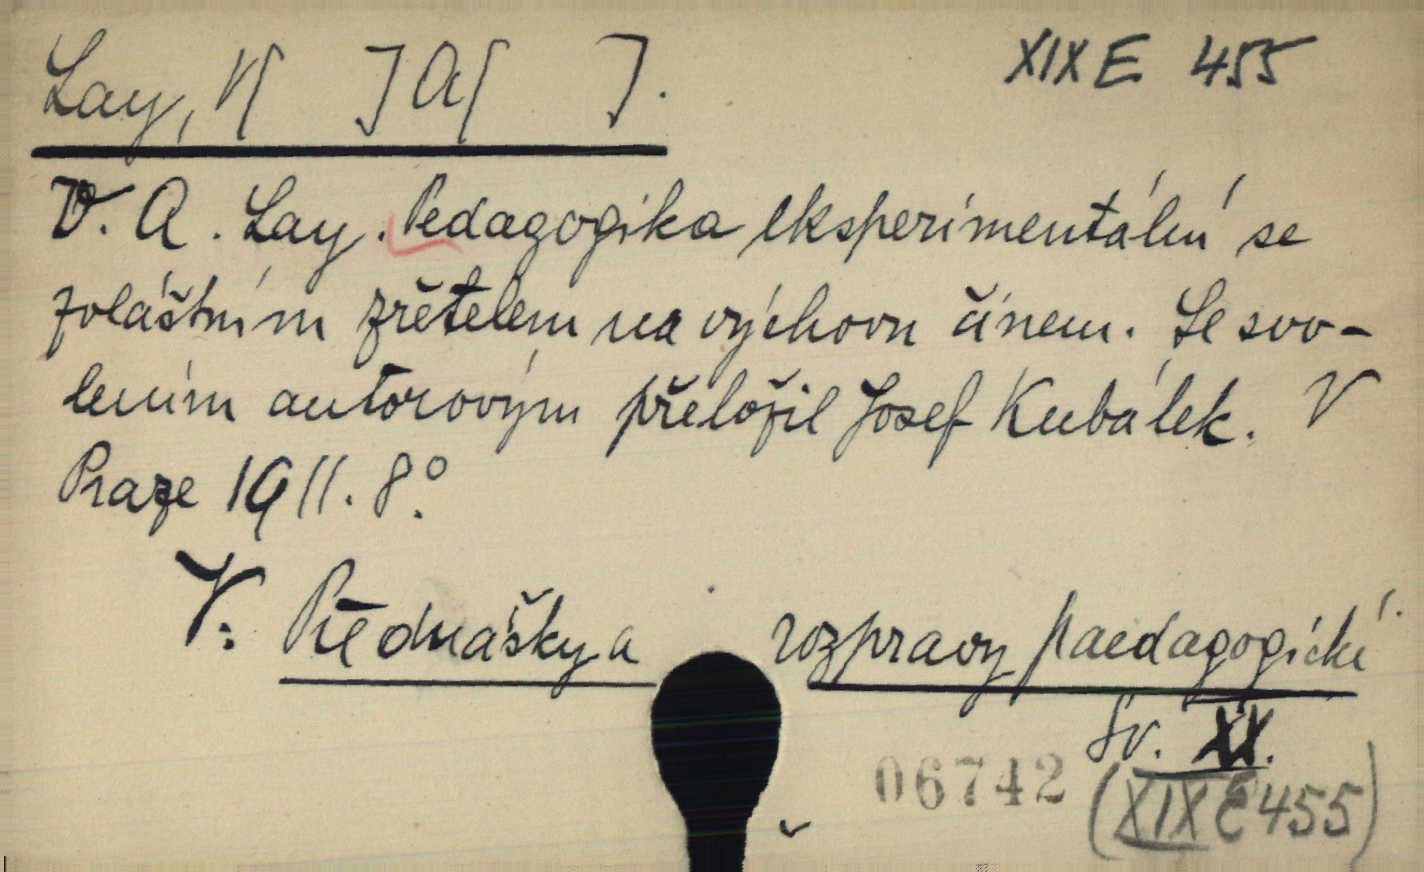 Lay, W[   ]A[   ].
XIX E 455
V. A. Lay. Pedagogika eksperimentální se
zvláštním zřetelem na výchovu činem. Se svo-
lením autorovým přeložil Josef Kubálek. V
Praze 1911. 8°.
V: Přednášky a rozpravy paedagogické
Sv. XX.
06742
(XIX E 455)